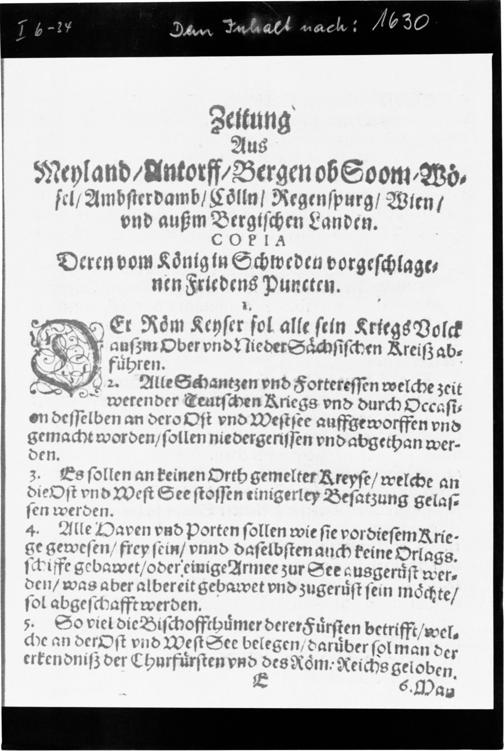 I 6-34 Dem Inhalt nach: 1630
Zeitung
Aus
Meyland/Antorff/Bergen ob Soom/Wö-
sel/Ambsterdamb/Cölln/Regenspurg/Wien/
vnd außm Bergischen Landen.
COPIA
Deren vom König in Schweden vorgeschlage-
nen Friedens Puncten.
1.
DEr Röm Keyser sol alle sein Kriegs Volck
auszm Ober vnd Nieder Sächsischen Kreiß ab-
führen.
2. Alle Schantzen vnd Forteressen welche zeit
werender Teutschen Kriegs vnd durch Occasi-
on desselben an dero Ost vnd Westsee auffgeworffen vnd
gemacht worden/sollen niedergerissen vnd abgethan wer-
den.
3. Es sollen an keinen Orth gemelter Kreyse/welche an
die Ost vnd West See stossen einigerley Besatzung gelas-
sen werden.
4. Alle Haven vnd Porten sollen wie sie vor diesem Krie-
ge gewesen/frey sein/vnnd daselbsten auch keine Orlags.
schiffe gebawet/oder einige Armee zur See ausgerüst wer-
den/was aber albereit gebawet vnd zugerüst sein möchte/
sol abgeschafft werden.
5. So viel die Bischoffthümer derer Fürsten betrifft/wel-
che an der Ost vnd West See belegen/darüber sol man der
erkendniß der Churfürsten vnd des Röm: Reichs geloben.
E
6. Man